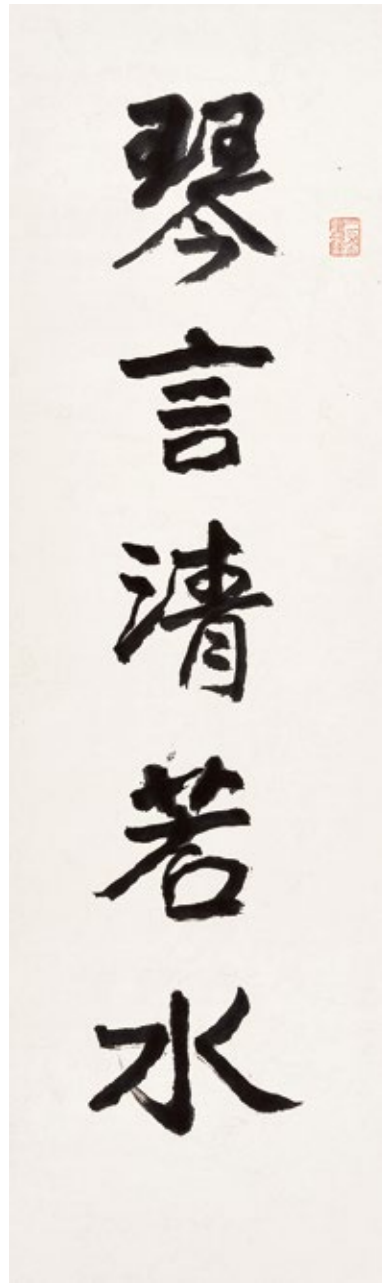 琴言清若水